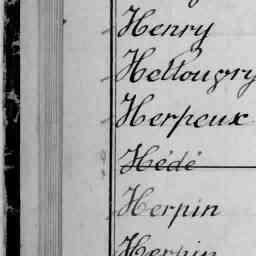 Henry
Hellougry
Herpeux
Hédé
Herpin
Herpin